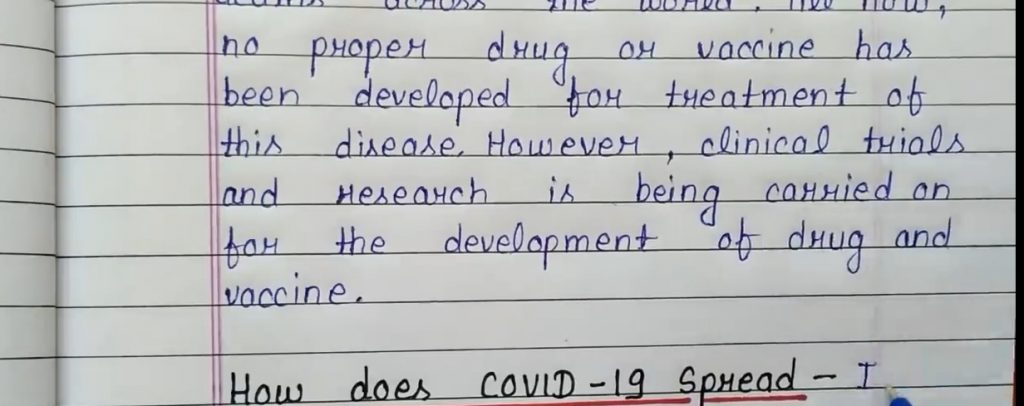 across the world. Till now,
no proper drug or vaccine has
been developed for treatment of
this disease. However, clinical trials
and research is being carried on
for the development of drug and
vaccine.
How does COVID-19 Spread - I